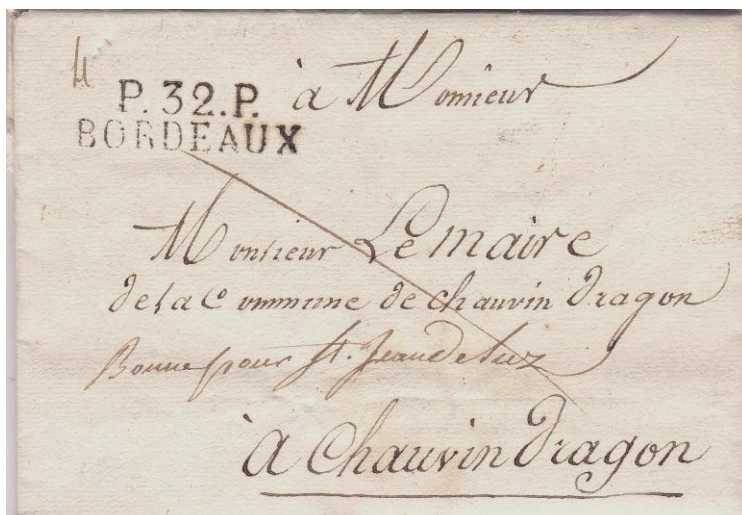 P.32.P.
BORDEAUX
à Monsieur
Monsieur Le maire
de la Commune de chauvin Dragon
Bonne pour St. Jean de luz
à Chauvin Dragon